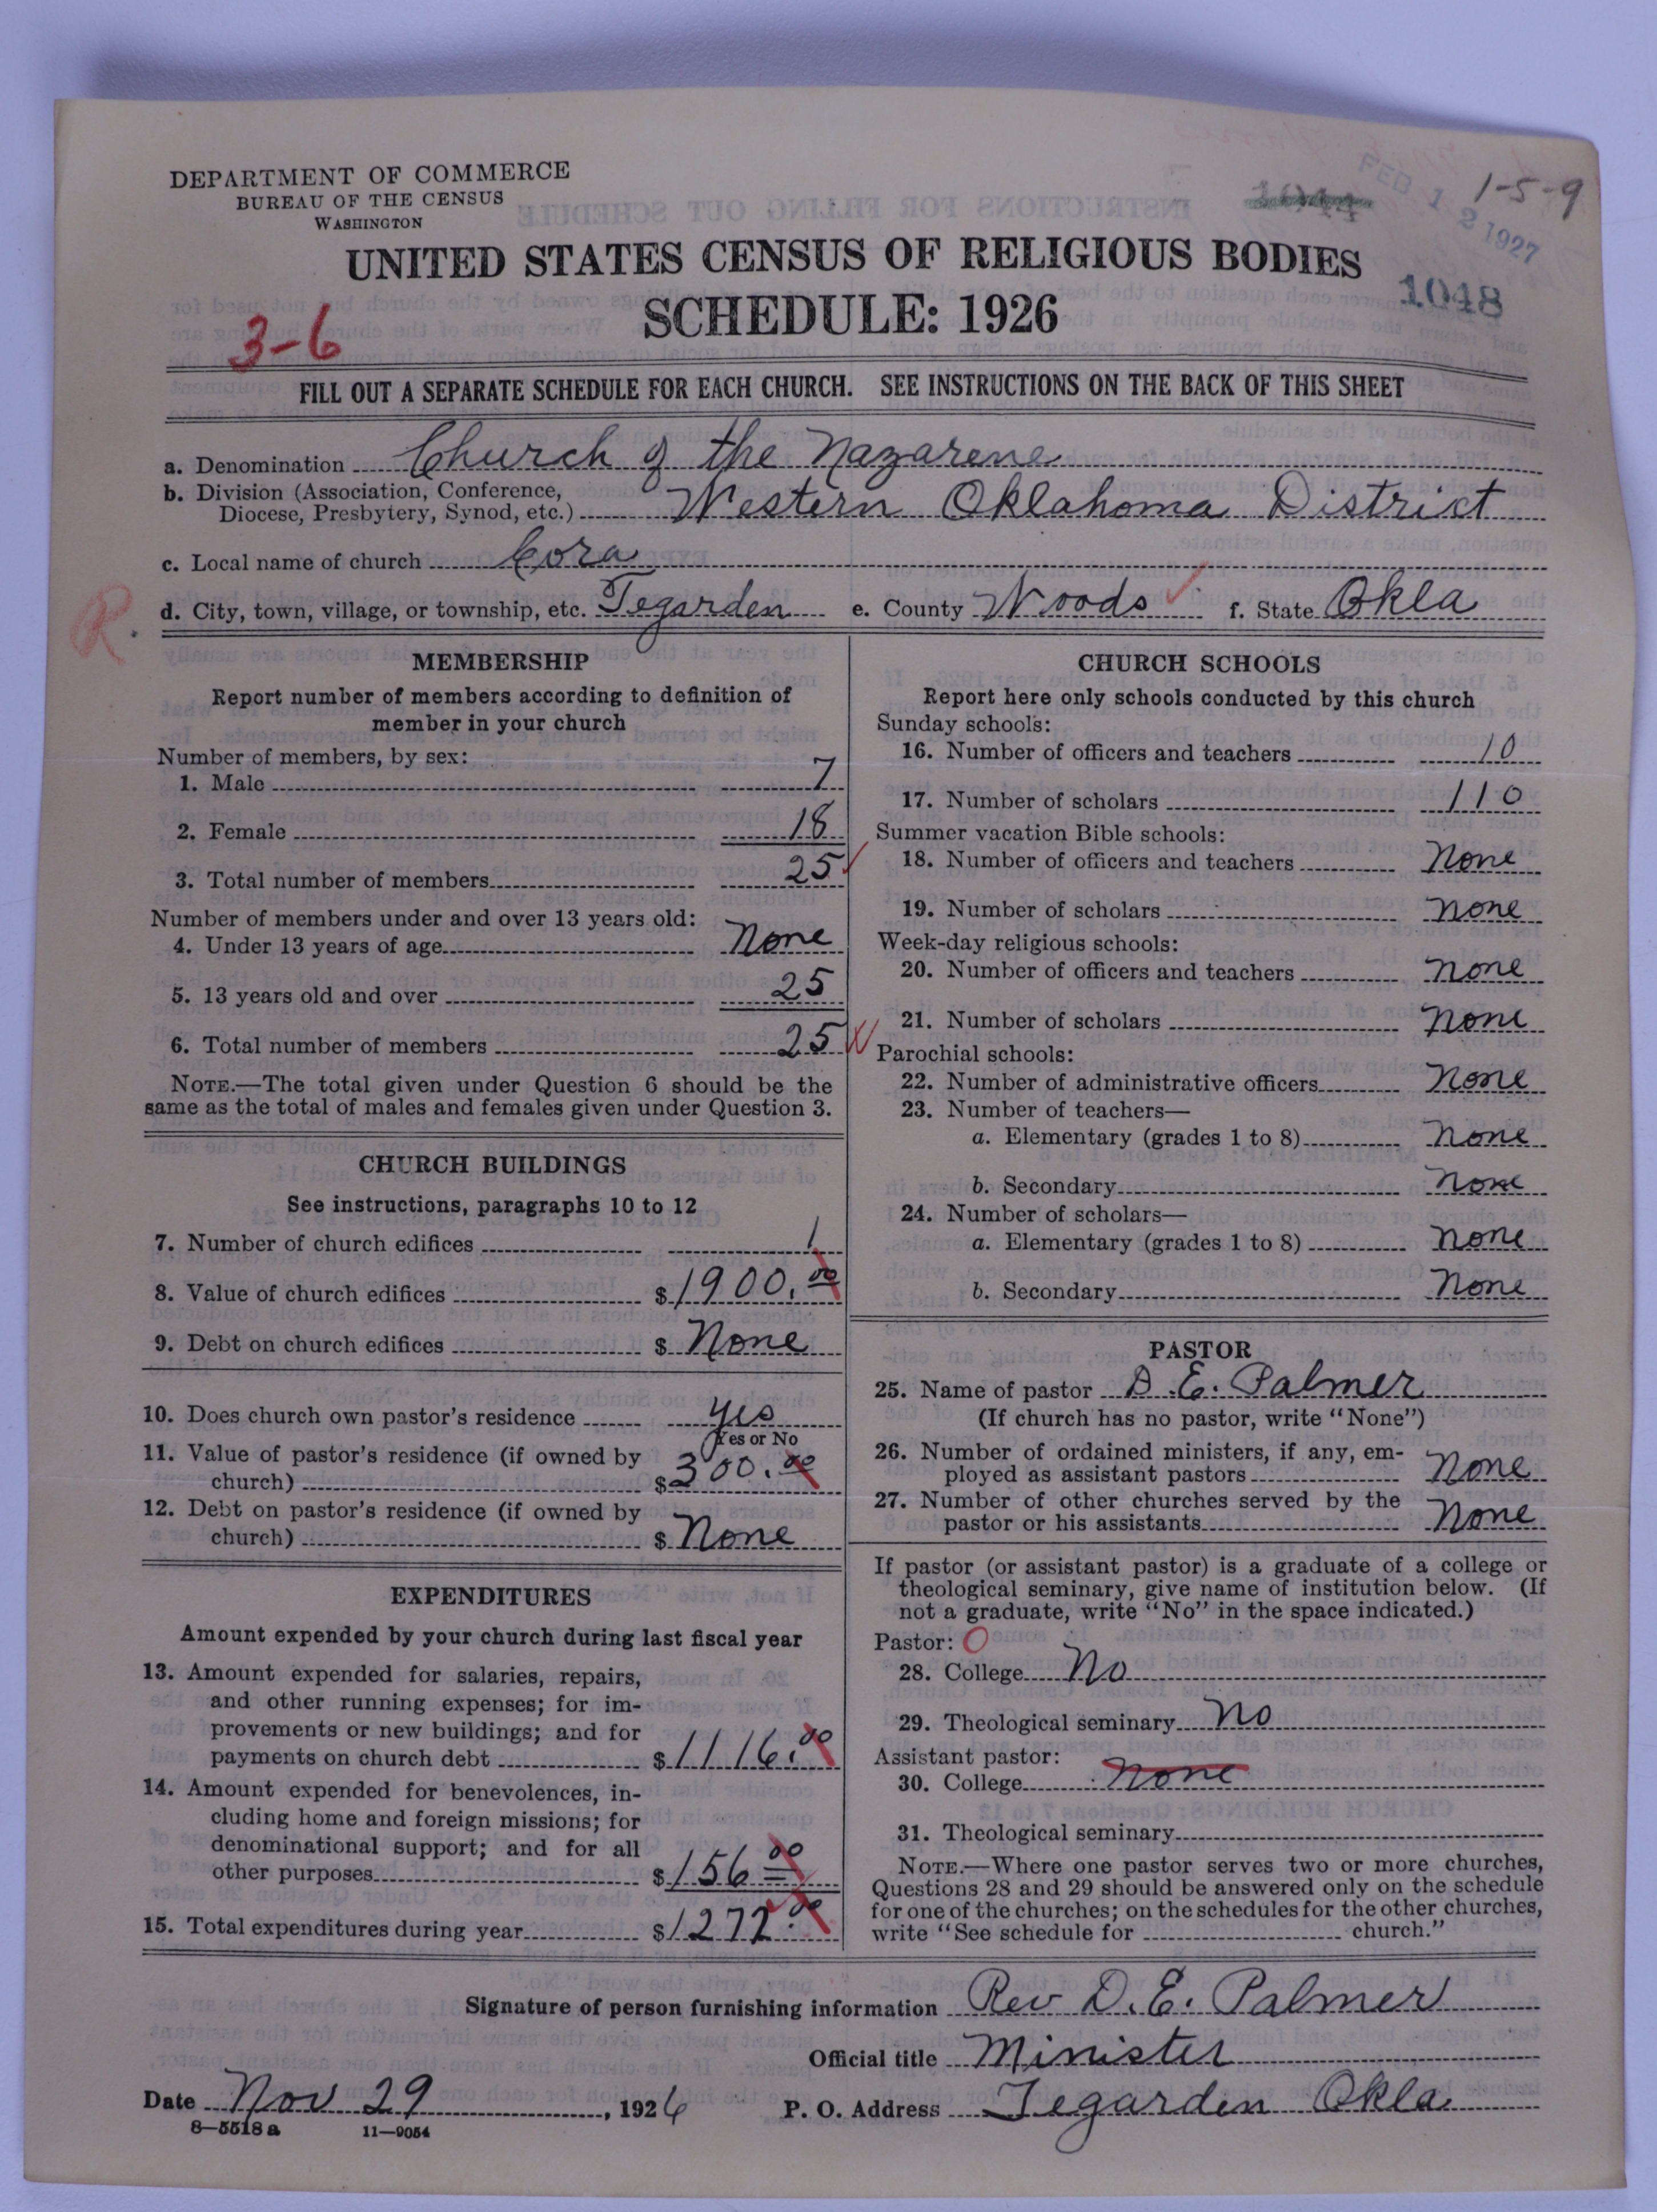 DEPARTMENT OF COMMERCE
BUREAU OF THE CENSUS
WASHINGTON
FEB 12 1927
1-5-9
UNITED STATES CENSUS OF RELIGIOUS BODIES
SCHEDULE: 1926
1048
3-6
FILL OUT A SEPARATE SCHEDULE FOR EACH CHURCH. SEE INSTRUCTIONS ON THE BACK OF THIS SHEET
a. Denomination Church of the Nazarene
b. Division (Association, Conference, Diocese, Presbytery, Synod, etc.) Western Oklahoma District
c. Local name of church Cora
R.
d. City, town, village, or township, etc. Tegarden e. County Woods f. State Okla
MEMBERSHIP
Report number of members according to definition of
member in your church
Number of members, by sex:
1. Male 7
2. Female 18
3. Total number of members 25
Number of members under and over 13 years old:
4. Under 13 years of age None
5. 13 years old and over 25
6. Total number of members 25
NOTE.—The total given under Question 6 should be the
same as the total of males and females given under Question 3.
CHURCH BUILDINGS
See instructions, paragraphs 10 to 12
7. Number of church edifices 1
8. Value of church edifices $1900.00
9. Debt on church edifices $ None
10. Does church own pastor's residence Yes
Yes or No
11. Value of pastor's residence (if owned by
church) $300.00
12. Debt on pastor's residence (if owned by
church) $ None
EXPENDITURES
Amount expended by your church during last fiscal year
13. Amount expended for salaries, repairs,
and other running expenses; for im-
provements or new buildings; and for
payments on church debt $1116.00
14. Amount expended for benevolences, in-
cluding home and foreign missions; for
denominational support; and for all
other purposes $156.00
15. Total expenditures during year $1272.00
CHURCH SCHOOLS
Report here only schools conducted by this church
Sunday schools:
16. Number of officers and teachers 10
17. Number of scholars 110
Summer vacation Bible schools:
18. Number of officers and teachers None
19. Number of scholars None
Week-day religious schools:
20. Number of officers and teachers None
21. Number of scholars None
Parochial schools:
22. Number of administrative officers None
23. Number of teachers—
a. Elementary (grades 1 to 8) None
b. Secondary None
24. Number of scholars—
a. Elementary (grades 1 to 8) None
b. Secondary None
PASTOR
25. Name of pastor D. E. Palmer
(If church has no pastor, write "None")
26. Number of ordained ministers, if any, em-
ployed as assistant pastors None
27. Number of other churches served by the
pastor or his assistants None
If pastor (or assistant pastor) is a graduate of a college or
theological seminary, give name of institution below. (If
not a graduate, write "No" in the space indicated.)
Pastor: O
28. College No
29. Theological seminary No
Assistant pastor:
30. College None
31. Theological seminary
NOTE.—Where one pastor serves two or more churches,
Questions 28 and 29 should be answered only on the schedule
for one of the churches; on the schedules for the other churches,
write "See schedule for church."
Signature of person furnishing information Rev D. E. Palmer
Official title Minister
Date Nov 29, 1926 P. O. Address Tegarden Okla
8—5518a 11—9054